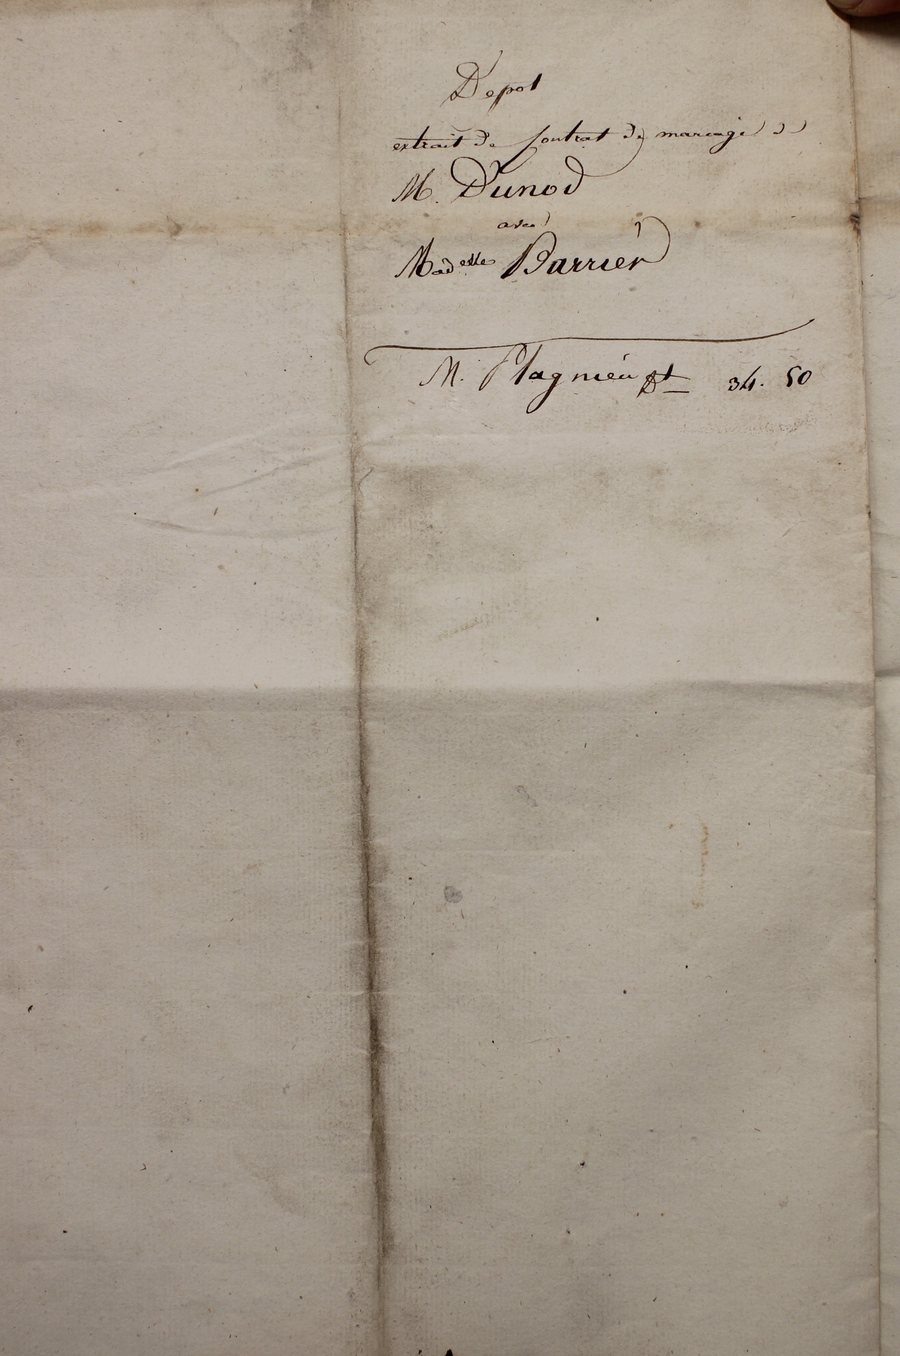 Depot
extrait de Contrat de mariage de
M. Dunod
avec
Madelle Barrier
M. Plagnieu Dt 34. 50